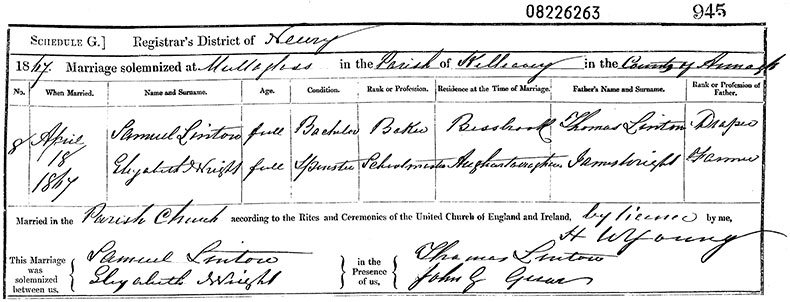 08226263 945
SCHEDULE G.] Registrar's District of Newry
1867. Marriage solemnized at Mullaglass in the Parish of Killeavy in the County of Armagh
No. When Married. Name and Surname. Age. Condition. Rank or Profession. Residence at the Time of Marriage. Father's Name and Surname. Rank or Profession of Father.
8 April 18 1867
Samuel Linton full Bachelor Baker Bessbrook Thomas Linton Draper
Elizabeth Wright full Spinster Schoolmistress James Wright Farmer
Married in the Parish Church according to the Rites and Ceremonies of the United Church of England and Ireland, by licence by me,
H W Young
This Marriage was solemnized between us, { Samuel Linton
Elizabeth Wright } in the Presence of us, { Thomas Linton
John G